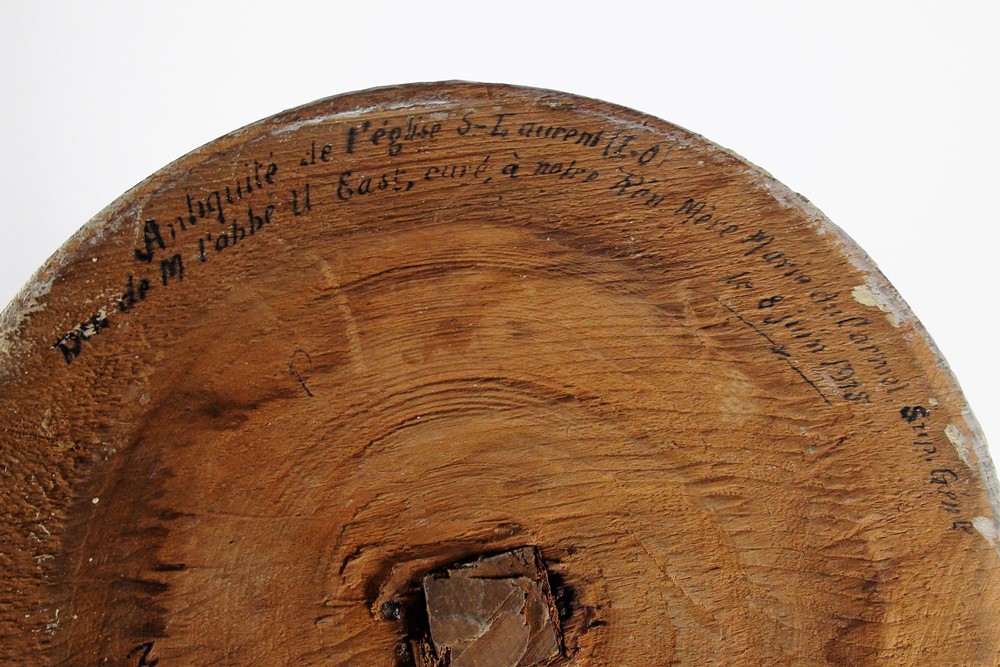 Antiquité de l'église S-Laurent (I.O)
Don de M l'abbé U East, curé, à notre Rén Mère Marie du Carmel Supr Gen
le 8 juin 1925
P
N